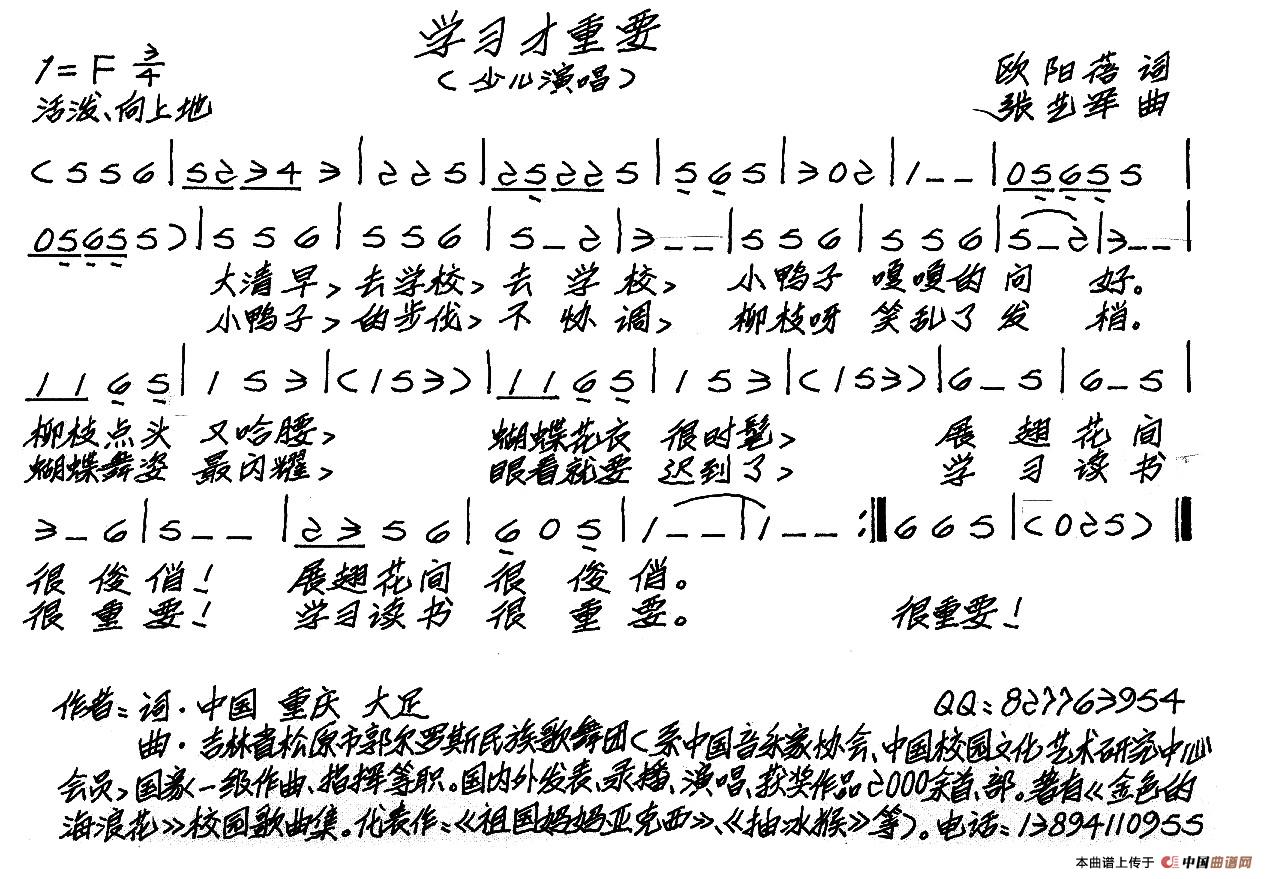 学习才重要
(少儿演唱)
1=F 3/4
活泼、向上地
欧阳蓓 词
张艺军 曲
(5 5 6 | 5 2 3 4 3 | 2 2 5 | 2 5 2 2 5 | 5 6 5 | 3 0 2 | 1 - - | 0 5 6 5 5 |
0 5 6 5 5) | 5 5 6 | 5 5 6 | 5 - 2 | 3 - - | 5 5 6 | 5 5 6 | 5 - 2 | 3 - - |
大清早, 去学校, 去 学 校, 小鸭子 嘎嘎的 问 好。
小鸭子, 的步伐, 不 协 调, 柳枝呀 笑乱了 发 梢。
1 1 6 5 | 1 5 3 | (1 5 3) | 1 1 6 5 | 1 5 3 | (1 5 3) | 6 - 5 | 6 - 5 |
柳枝点头 又哈腰, 蝴蝶花衣 很时髦, 展 翅 花 间
蝴蝶舞姿 最闪耀, 眼看就要 迟到了, 学 习 读 书
3 - 6 | 5 - - | 2 3 5 6 | 6 0 5 | 1 - - | 1 - - :‖ 6 6 5 | (0 2 5) ‖
很 俊 俏! 展翅花间 很 俊 俏。
很 重 要! 学习读书 很 重 要。 很重要!
作者:词·中国 重庆 大足 QQ:827763954
曲·吉林省松原市郭尔罗斯民族歌舞团(系中国音乐家协会、中国校园文化艺术研究中心
会员,国家一级作曲、指挥等职。国内外发表、录播、演唱、获奖作品2000余首、部。著有《金色的
海浪花》校园歌曲集。代表作:《祖国妈妈亚克西》、《抽冰猴》等)。电话:13894110955
本曲谱上传于 中国曲谱网